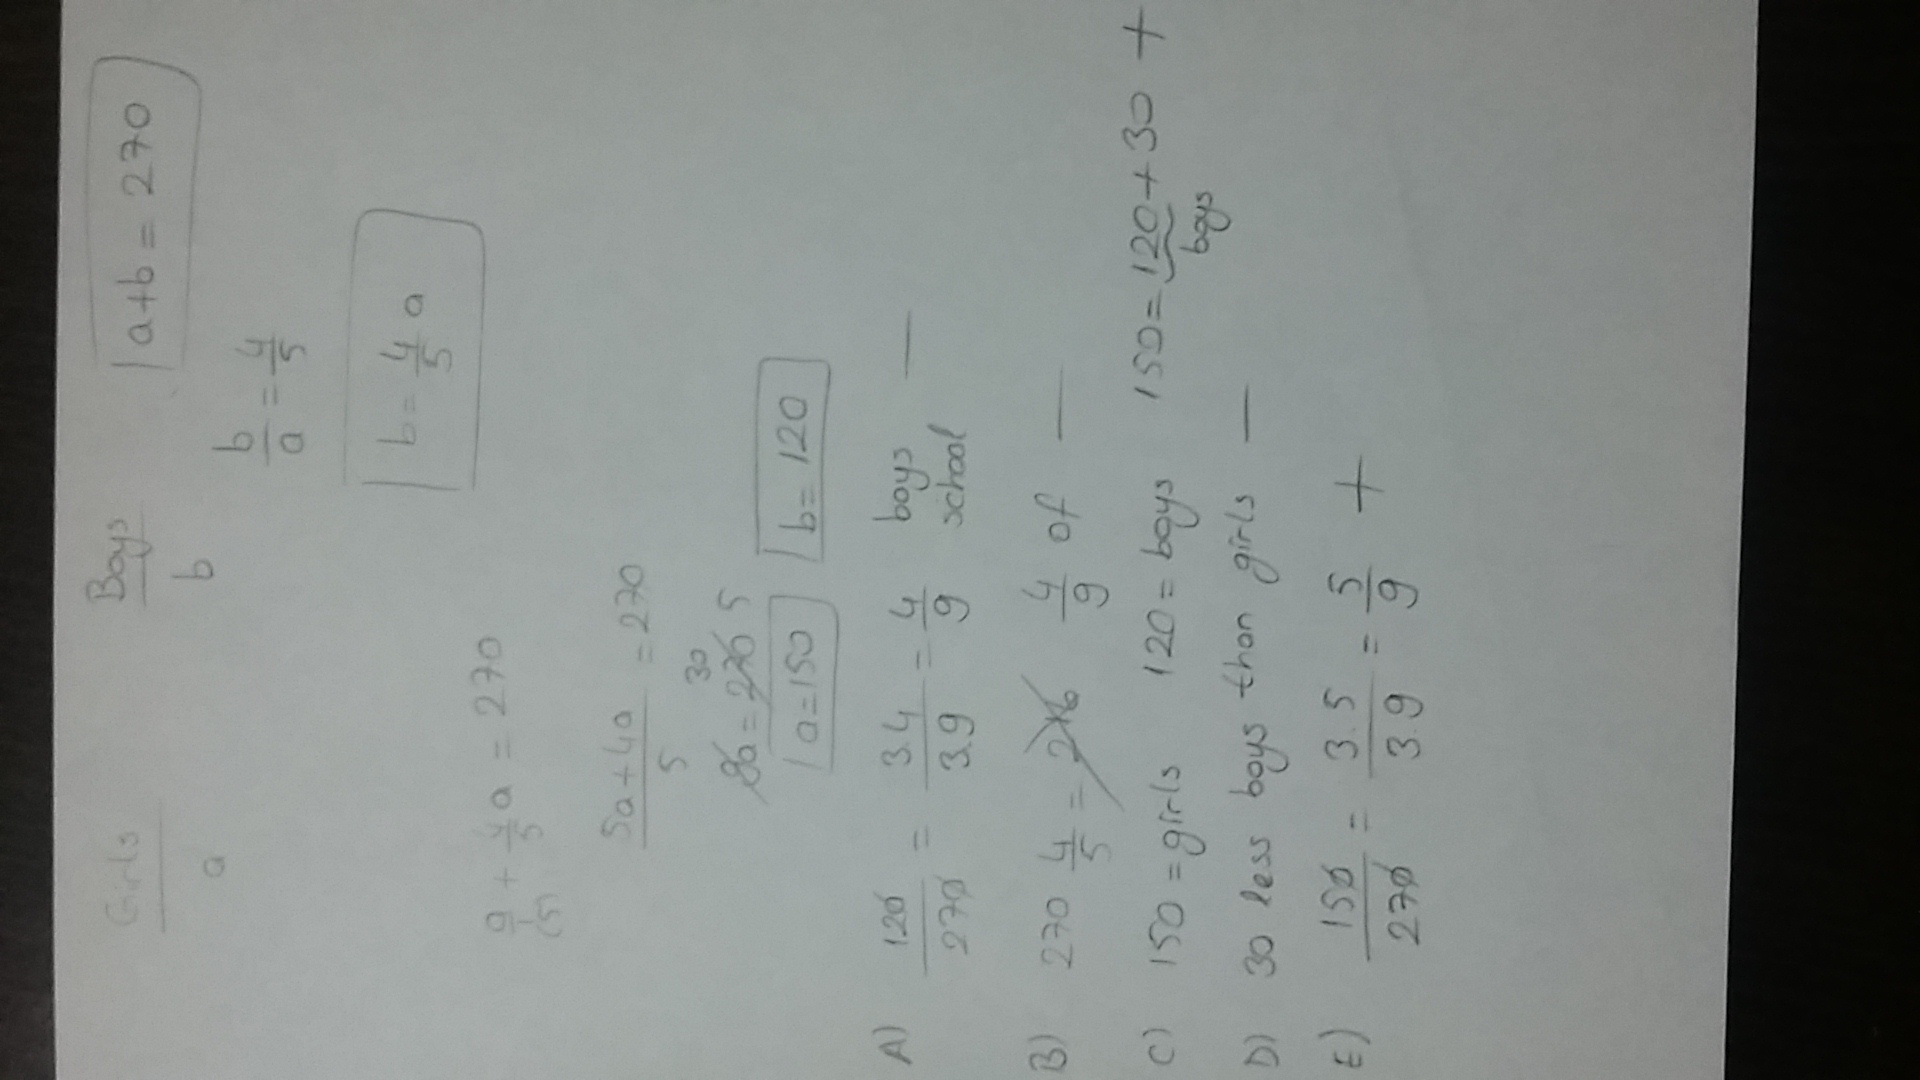 Girls Boys a+b = 270
a b
b/a = 4/5
b = 4/5 a
a/1 + 4/5 a = 270
(5)
5a+4a/5 = 270
30
9a = 270 5
a=150 b= 120
A) 120/270 = 3.4/3.9 = 4/9 boys/school —
B) 270 4/5 = 216 4/9 of —
C) 150 = girls 120 = boys 150 = 120 + 30 +
boys
D) 30 less boys than girls —
E) 150/270 = 3.5/3.9 = 5/9 +